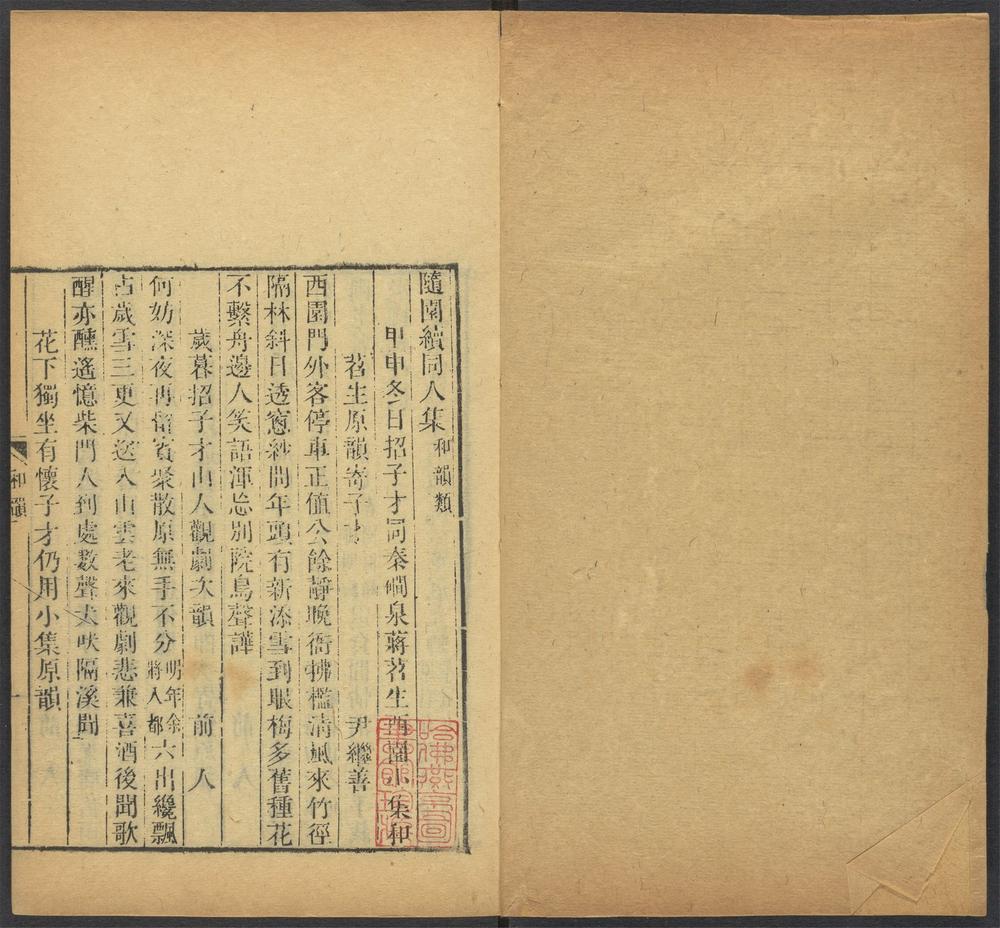 隨園續同人集和韻類
甲申冬日招子才同秦磵泉蔣苕生西園小集和
苕生原韻寄子才 尹繼善
西園門外客停車正值公餘靜晚衙拂檻清風來竹徑
隔林斜日透窻紗問年頭有新添雪到眼梅多舊種花
不繫舟邊人笑語渾忘別院鳥聲譁
歲暮招子才山人觀劇次韻 前人
何妨深夜再留賓聚散原無手不分明年余將入都六出纔飄
占歲雪三更又送入山雲老來觀劇悲兼喜酒後聞歌
醒亦醺遙憶柴門人到處數聲犬吠隔溪聞
花下獨坐有懷子才仍用小集原韻
和韻
一
哈佛燕京圖